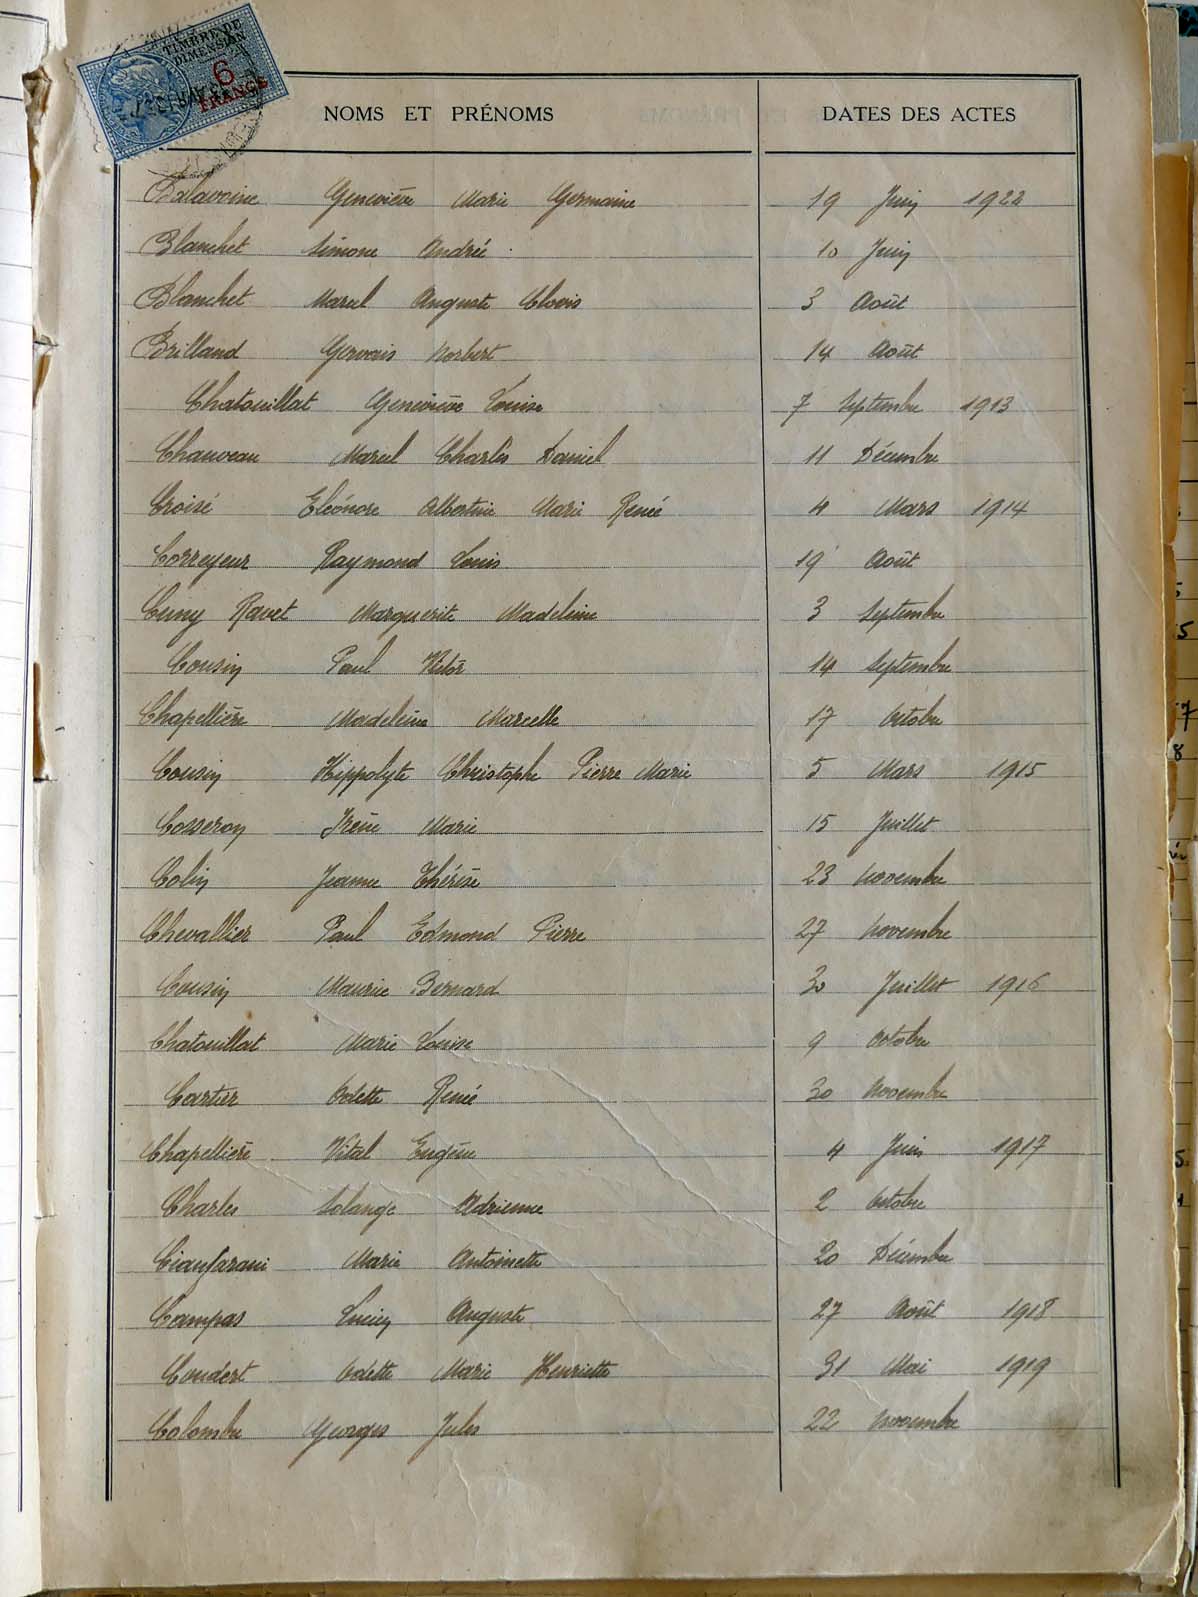 TIMBRE DE
DIMENSION
6
FRANCS
NOMS ET PRÉNOMS DATES DES ACTES
Balavoine Geneviève Marie Germaine 19 Juin 1922
Blanchet Simone Andrée 10 Juin
Blanchet Marcel Auguste Clovis 3 Août
Brilland Gervais Norbert 14 Août
Chatouillat Geneviève Louise 7 Septembre 1913
Chauveau Marcel Charles Daniel 11 Décembre
Croisé Eléonore Albertine Marie Renée 4 Mars 1914
Correyeur Raymond Louis 19 Août
Cuny Ravet Marguerite Madeleine 3 Septembre
Cousin Paul Victor 14 Septembre
Chapellière Madeleine Marcelle 17 Octobre
Cousin Hippolyte Christophe Pierre Marie 5 Mars 1915
Cosseron Irène Marie 15 Juillet
Colin Jeanne Thérèse 23 Novembre
Chevallier Paul Edmond Pierre 27 Novembre
Cousin Maurice Bernard 30 Juillet 1916
Chatouillat Marie Louise 9 Octobre
Cartier Odette Renée 30 Novembre
Chapellière Vital Eugène 4 Juin 1917
Charles Solange Adrienne 2 Octobre
Cianfarani Marie Antoinette 20 Décembre
Campas Lucien Auguste 27 Août 1918
Coudert Odette Marie Henriette 31 Mai 1919
Colombe Georges Jules 22 Novembre